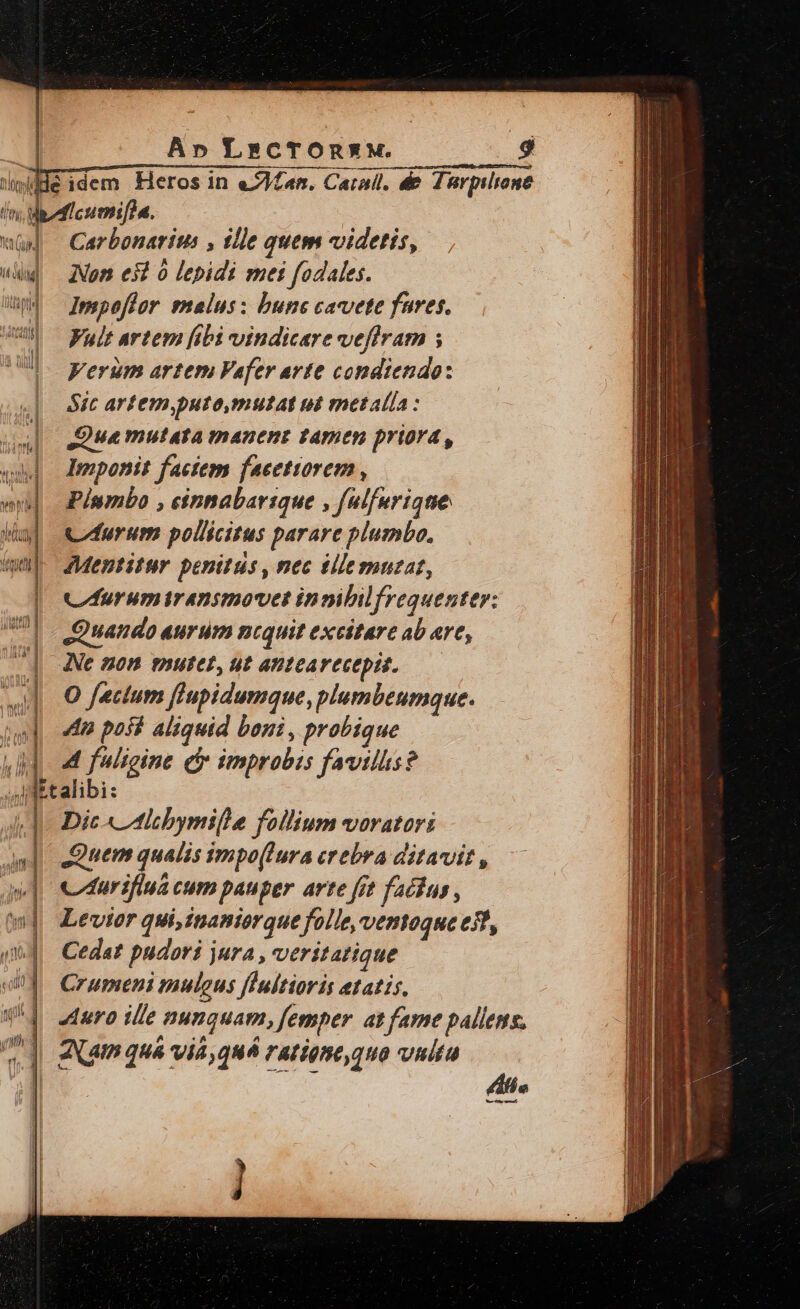 AD LECTOREM. 9
idem Heros in Man. Catall. de Turpilione
Alcumista.
Carbonarius, ille quem videtis,
Non est ò lepidi mei sodales.
Impostor malus: hunc cavete fures.
Vult artem sibi vindicare vestram;
Verùm artem Vafer arte condiendo:
Sic artem, puto, mutat ut metalla:
Quæ mutata manent tamen priora,
Imponit faciem facetiorem,
Plumbo, cinnabarique, sulfurique
Aurum pollicitus parare plumbo.
Mentitur penitùs, nec ille mutat,
Aurum transmovet in nihil frequenter:
Quando aurum nequit excitare ab ære,
Ne non mutet, ut ante a recepit.
O factum stupidumque, plumbeumque.
An post aliquid boni, probique
A fuligine & improbis favillis?
Et alibi:
Dic Alchymista follium voratori
Quem qualis impostura crebra ditavit,
Aurifluâ cum pauper arte sit factus,
Levior qui, inaniorque folle, ventoque est,
Cedat pudori jura, veritatique
Crumeni mulgus stultioris ætatis,
Auro ille nunquam, semper at fame pallens.
Nam quâ viâ, quâ ratione, quo vultu